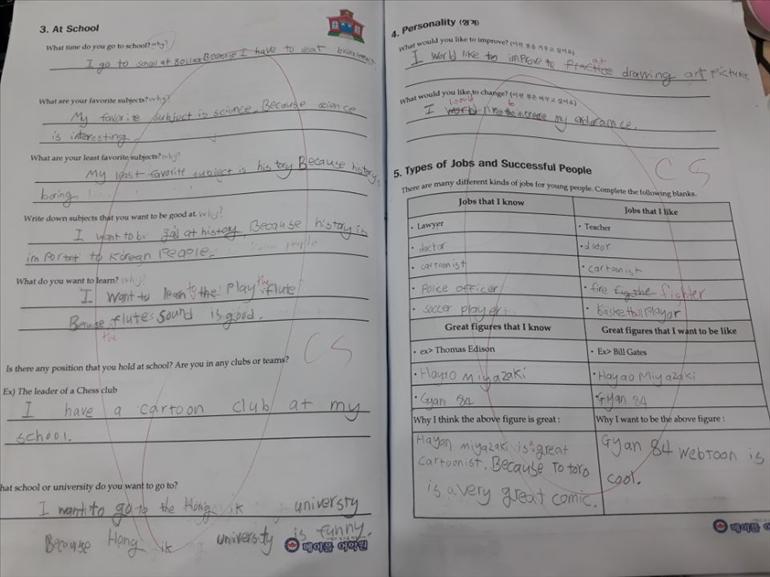 3. At School
What time do you go to school? why?
I go to school at Because I have to eat
What are your favorite subjects? why?
My favorite subject is science. Because science
is interesting.
What are your least favorite subjects? why?
My least favorite subject is history Because history
boring
Write down subjects that you want to be good at. why?
I want to be good at history. Because history is
important to Korean People.
What do you want to learn? why?
I want to learn to play the flute
Because the flute sound is good.
CS
Is there any position that you hold at school? Are you in any clubs or teams?
Ex) The leader of a Chess club
I have a cartoon club at my
school.
hat school or university do you want to go to?
I want to go to the Hong ik universty
Because Hong ik university is funny.
메이플 어학원
4. Personality (성격)
What would you like to improve?
I would like to improve drawing art picture
What would you like to change?
I would my
CS
5. Types of Jobs and Successful People
There are many different kinds of jobs for young people. Complete the following blanks.
Jobs that I know Jobs that I like
• Lawyer • Teacher
• doctor • doctor
• cartoonist • cartoonist
• Police officer • fire fighter
• soccer player • basketball player
Great figures that I know Great figures that I want to be like
• ex> Thomas Edison • Ex> Bill Gates
• Hayao miyazaki • Hayao Miyazaki
• Gyan 84 • Gyan 84
Why I think the above figure is great : Why I want to be the above figure :
Hayao miyazaki is great Gyan 84 webtoon is
cartoonist. Because Totoro cool.
is a very great comic.
메이플 어학원